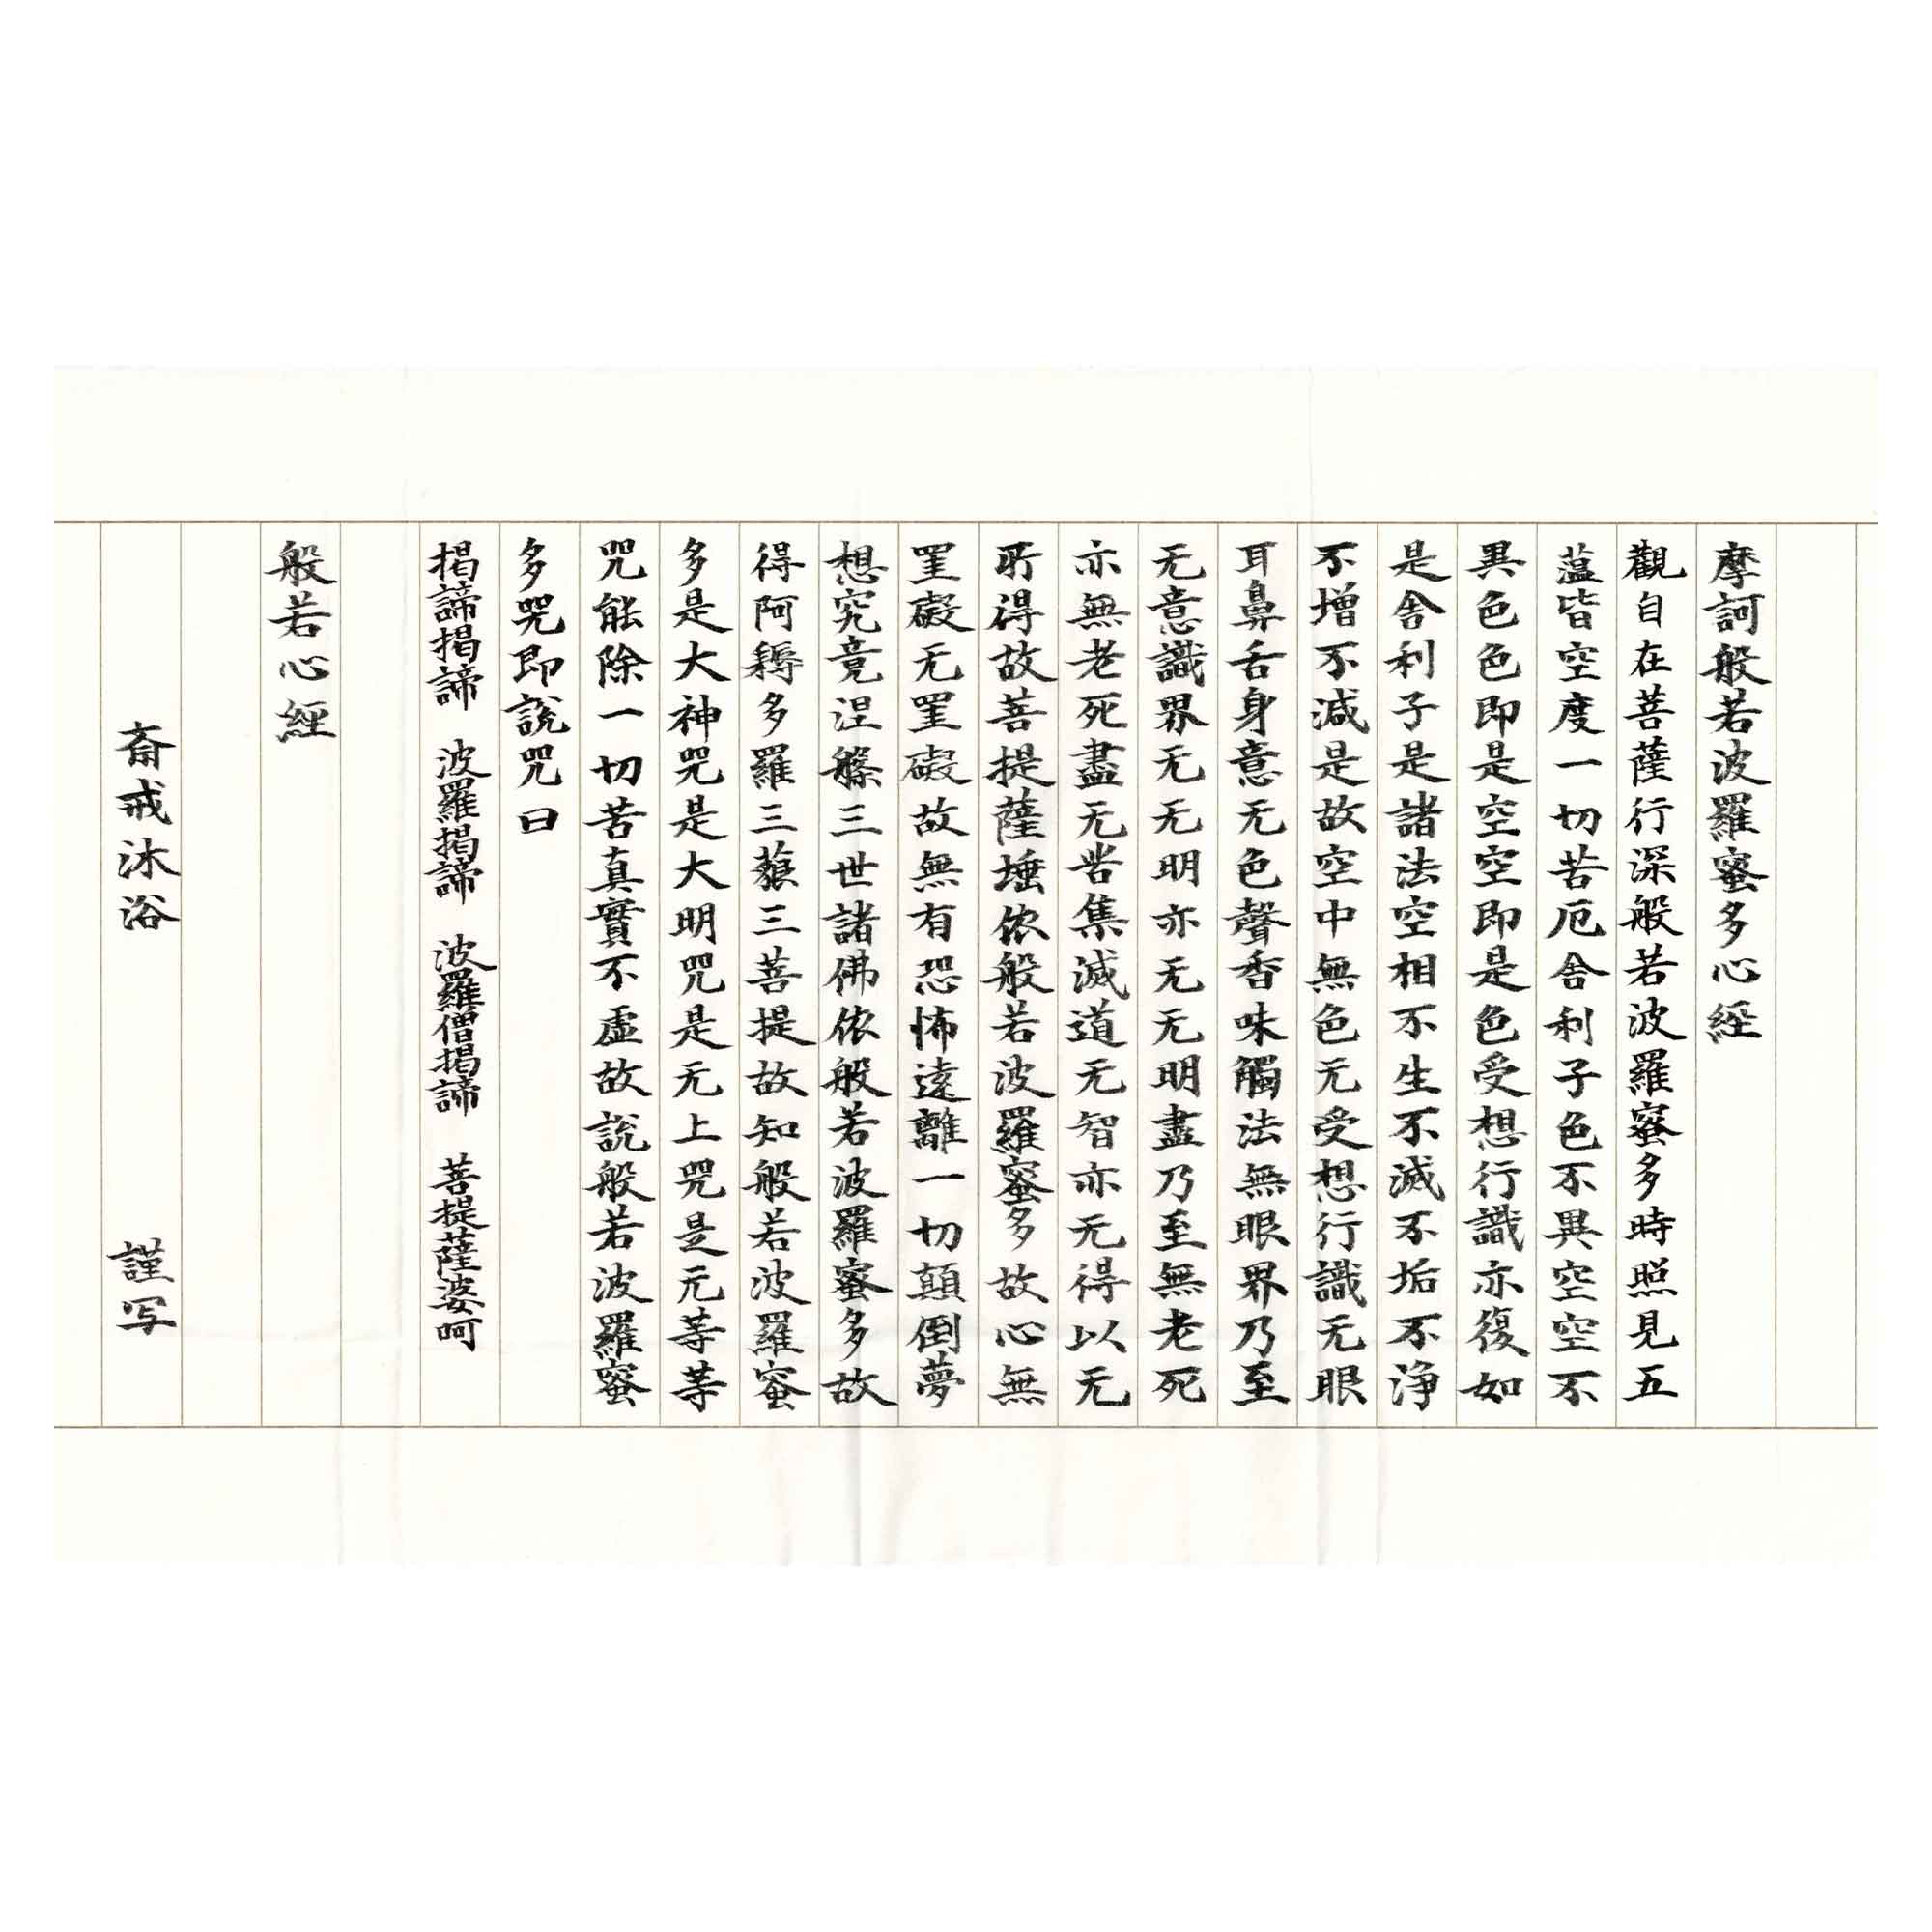 摩訶般若波羅蜜多心経
觀自在菩薩行深般若波羅蜜多時照見五
蕰皆空度一切苦厄舎利子色不異空空不
異色色即是空空即是色受想行識亦復如
是舎利子是諸法空相不生不滅不垢不浄
不增不減是故空中無色无受想行識无眼
耳鼻舌身意无色聲香味觸法無眼界乃至
无意識界无无明亦无无明盡乃至無老死
亦無老死盡无苦集滅道无智亦无得以无
所得故菩提薩埵依般若波羅蜜多故心無
罣礙无罣礙故無有恐怖遠離一切顛倒夢
想究竟涅槃三世諸佛依般若波羅蜜多故
得阿耨多羅三藐三菩提故知般若波羅蜜
多是大神咒是大明咒是无上咒是无等等
咒能除一切苦真實不虛故說般若波羅蜜
多咒即說咒曰
掲諦掲諦 波羅掲諦 波羅僧掲諦 菩提薩婆呵
般若心經
斎戒沐浴 謹写